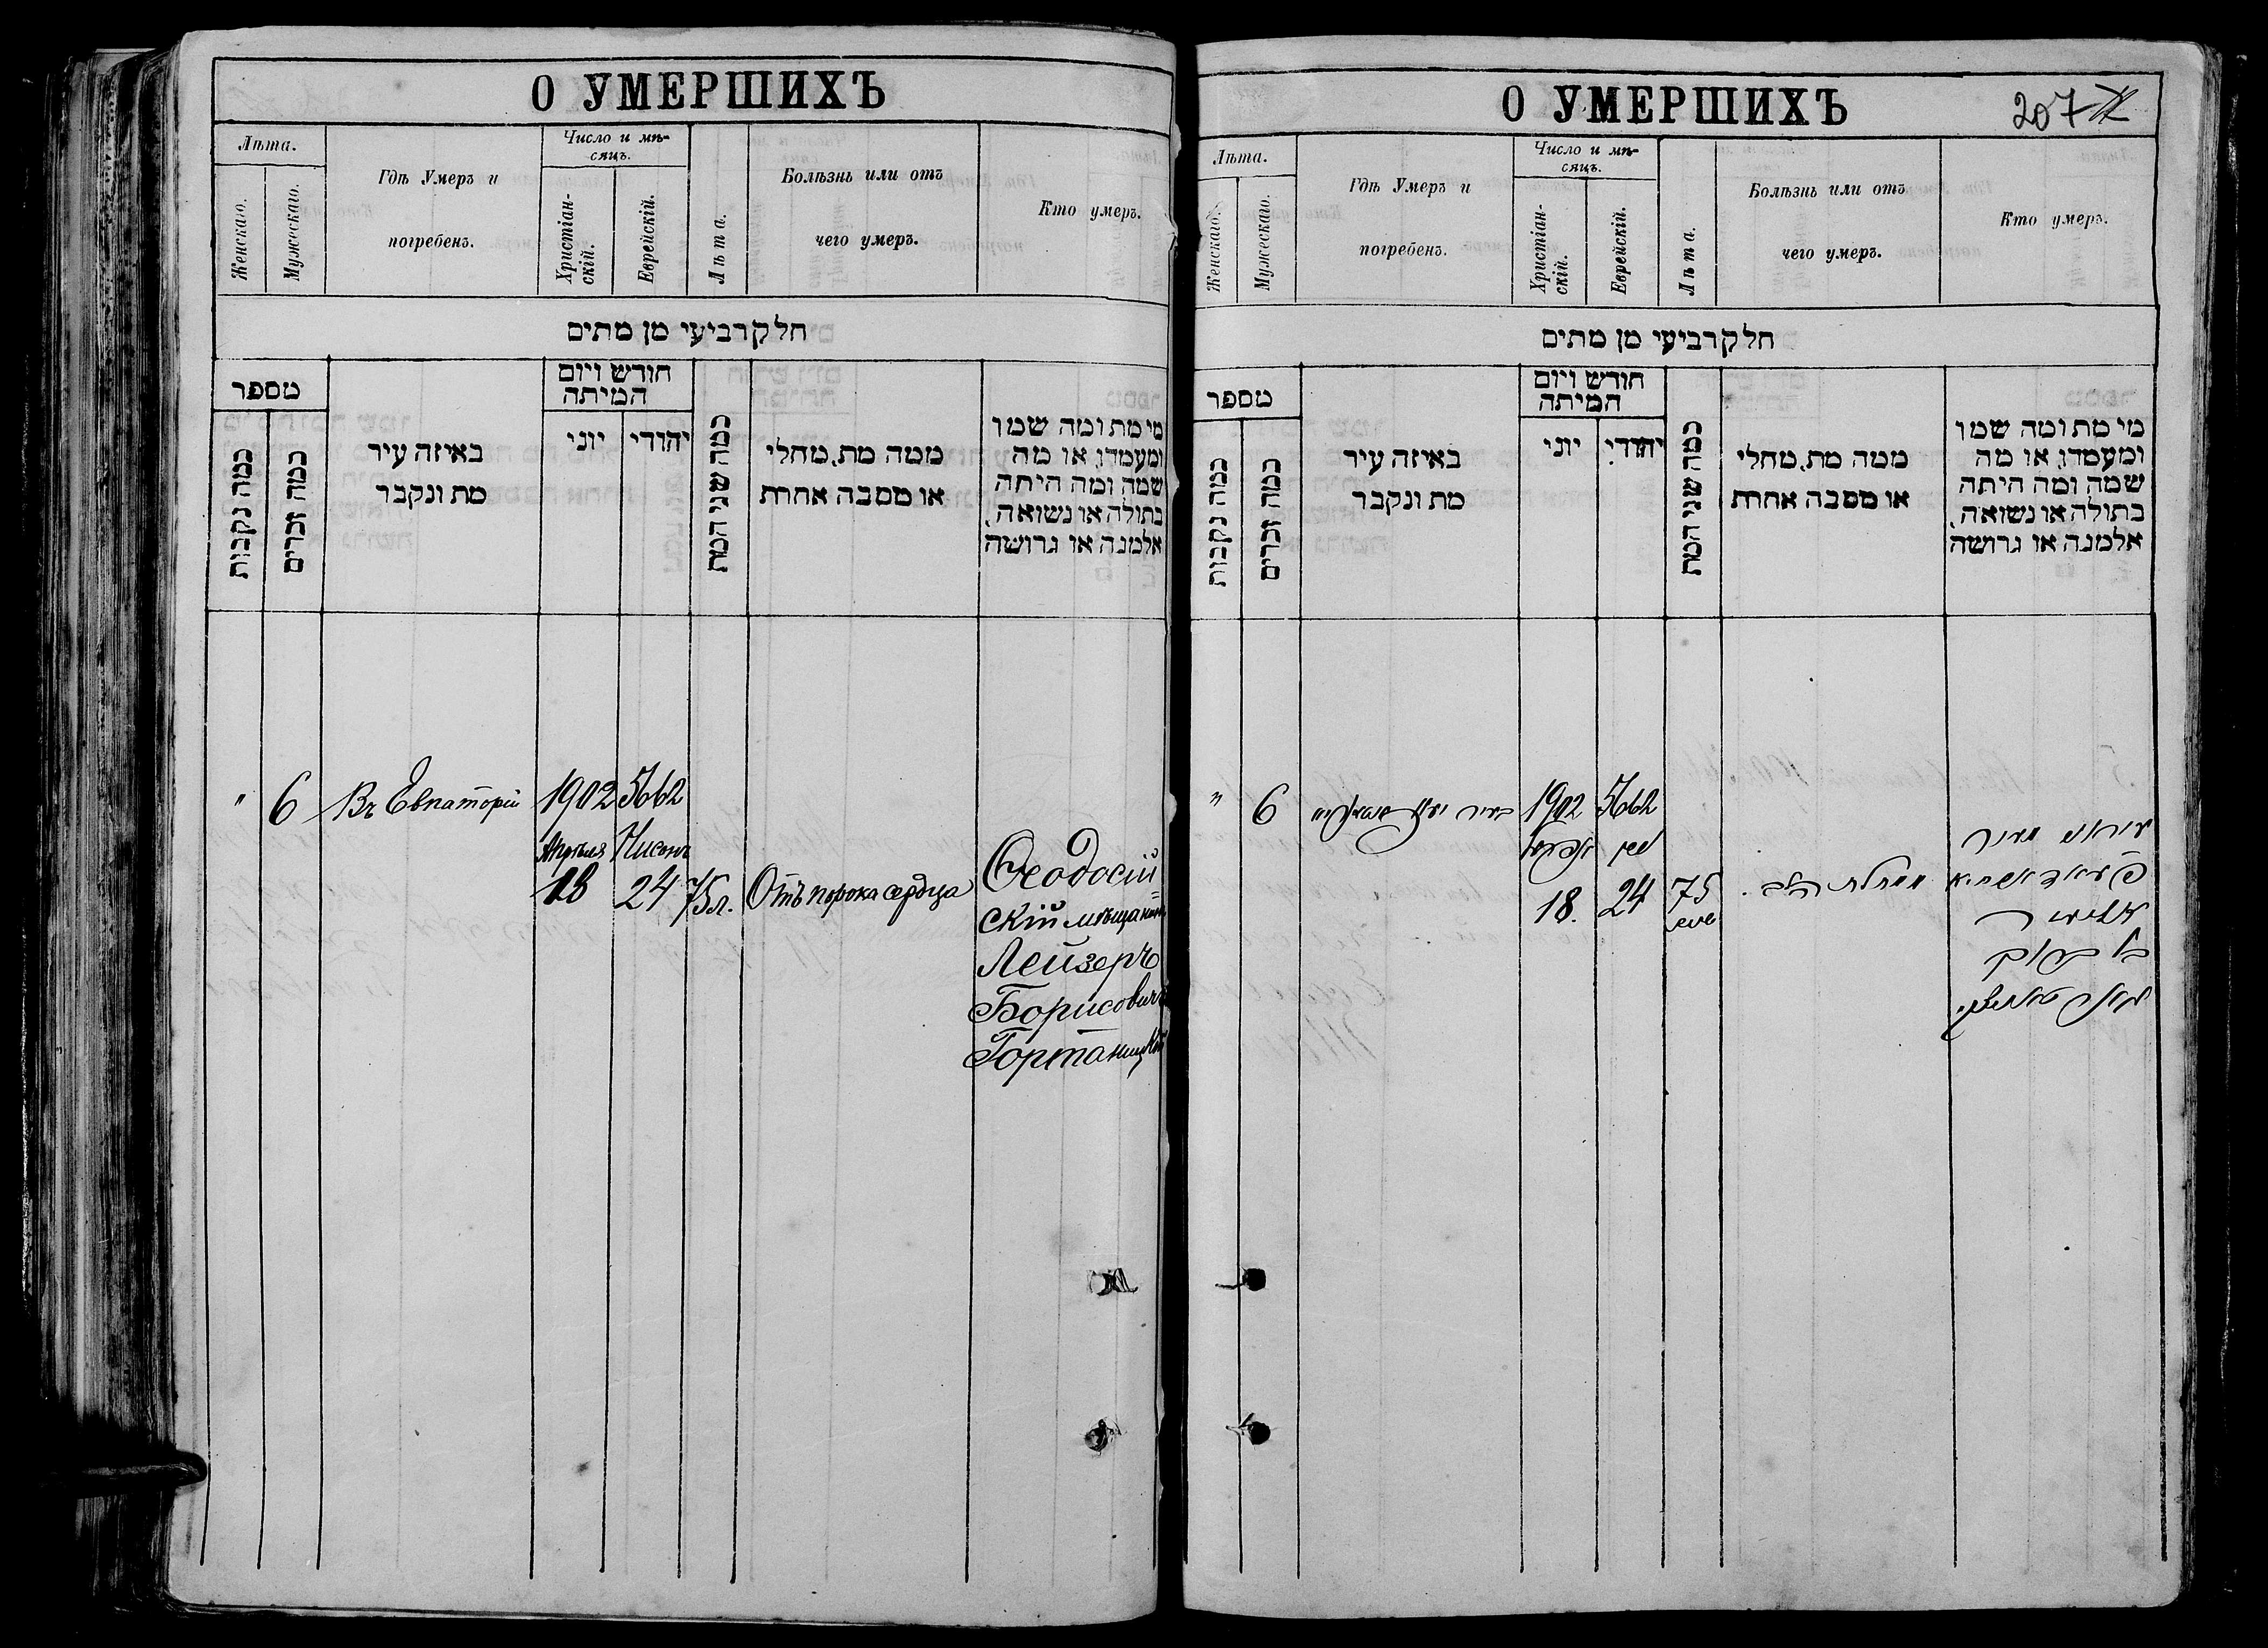 О УМЕРШИХЪ
Лѣта.
Женскаго.
Мужескаго.
Гдѣ Умеръ и
погребенъ.
Число и мѣ-
сяцъ.
Христіан-
скій.
Еврейскій.
Лѣта.
Болѣзнь или отъ
чего умеръ.
Кто умеръ.
חלק רביעי מן מתים
מספר
כמה נקבות
כמה זכרים
באיזה עיר
מת ונקבר
חודש ויום
המיתה
יוני
יהודי
כמה שני המת
ממה מת, מחלי
או מסבה אחרת
מי מת ומה שמו
ומעמדו, או מה
שמה ומה היתה
בתולה או נשואה,
אלמנה או גרושה
" 6 Въ Евпаторіи 1902 5662
Апрѣля Нисонъ
18 24 75 л. Отъ порока сердца
Ѳеодосій
скій мѣщанинъ
Лейзеръ
Борисовичъ
Гортаницкій
О УМЕРШИХЪ
207
Лѣта.
Женскаго.
Мужескаго.
Гдѣ Умеръ и
погребенъ.
Число и мѣ-
сяцъ.
Христіан-
скій.
Еврейскій.
Лѣта.
Болѣзнь или отъ
чего умеръ.
Кто умеръ.
חלק רביעי מן מתים
מספר
כמה נקבות
כמה זכרים
באיזה עיר
מת ונקבר
חודש ויום
המיתה
יוני
יהודי
כמה שני המת
ממה מת, מחלי
או מסבה אחרת
מי מת ומה שמו
ומעמדו, או מה
שמה ומה היתה
בתולה או נשואה,
אלמנה או גרושה
" 6 בעיר 1902 5662
אפריל ניסן
18. 24 75 שנה
ממחלת הלב.
אליעזר